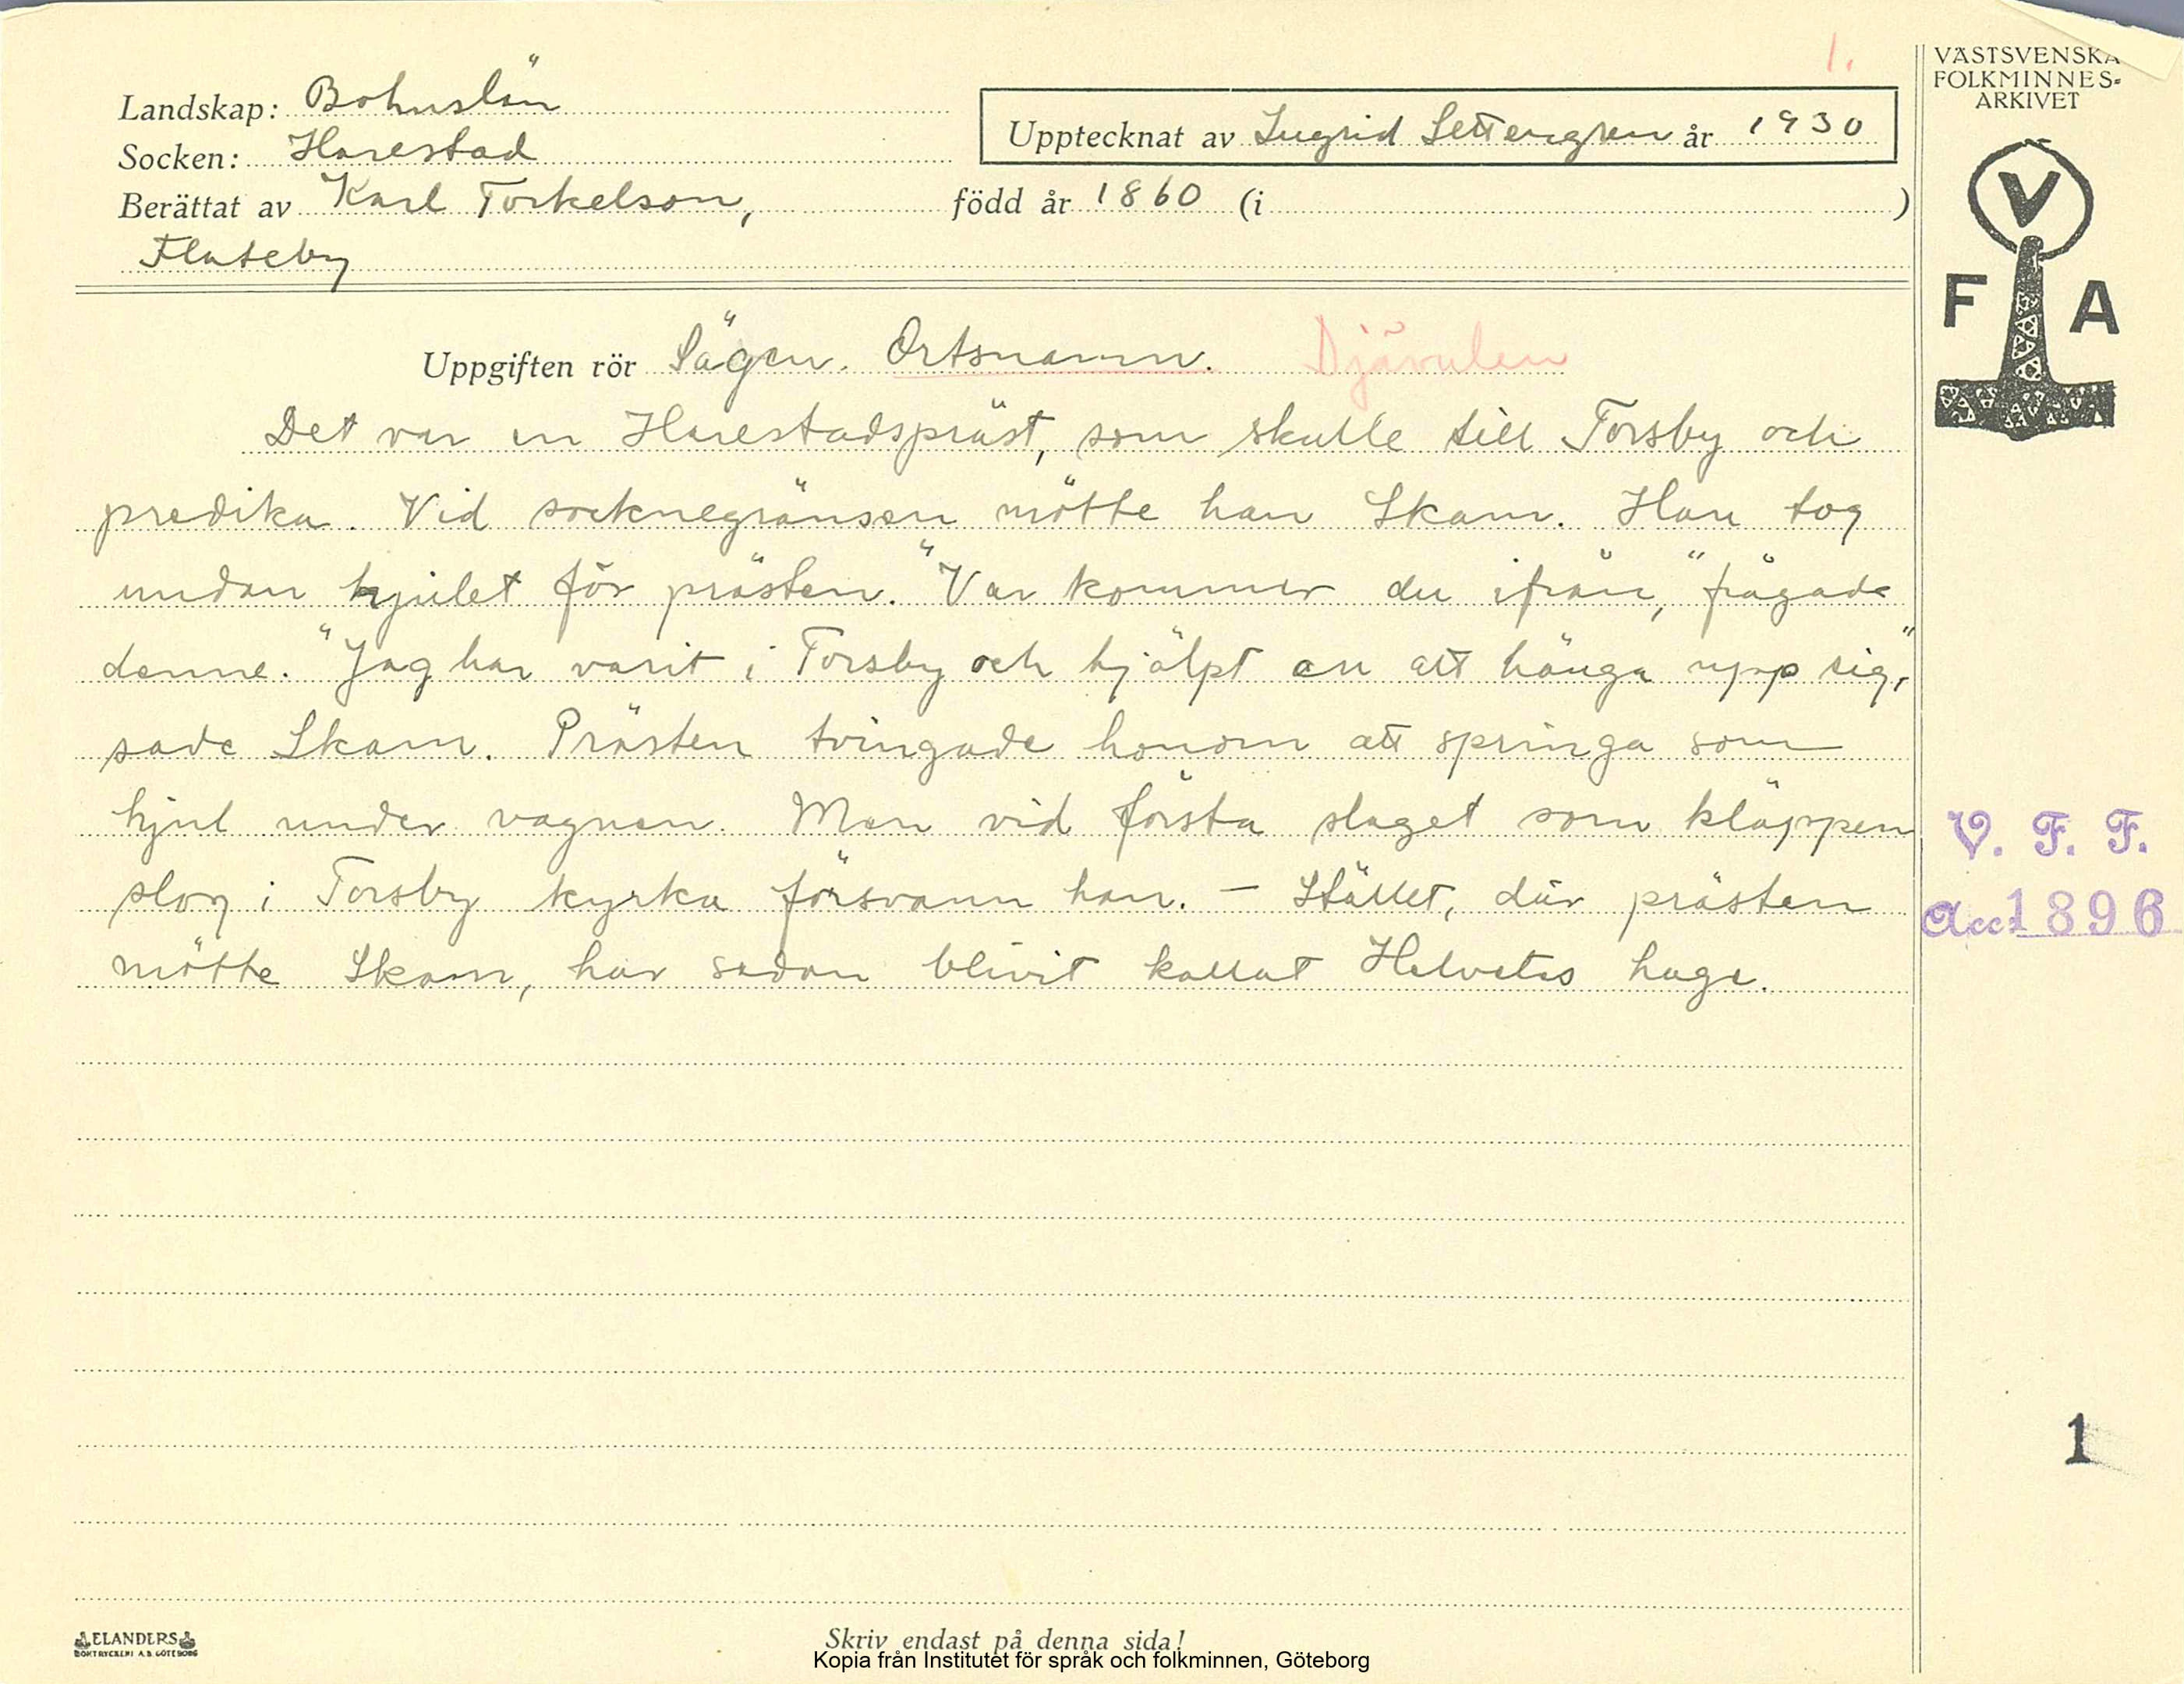 1.
Landskap: Bohuslän
Socken: Harestad
Upptecknat av Ingrid Settergren år 1930
Berättat av Karl Torkelson, född år 1860 (i )
Flateby
VÄSTSVENSKA
FOLKMINNES-
ARKIVET
V
F A
Uppgiften rör Sägen. Ortsnamn. Djävulen
Det var en Harestadspräst, som skulle till Torsby och
predika. Vid socknegränsen mötte han Skam. Han tog
undan hjulet för prästen. "Var kommer du ifrån," frågade
denne. "Jag har varit i Torsby och hjälpt en att hänga upp sig,"
sade Skam. Prästen tvingade honom att springa som
hjul under vagnen. Men vid första slaget som kläppen
slog i Torsby kyrka försvann han. – Stället, där prästen
mötte Skam, har sedan blivit kallat Helvetes hage.
V. F. F.
Acc 1896
1
ELANDERS
BOKTRYCKERI A.B. GÖTEBORG
Skriv endast på denna sida!
Kopia från Institutet för språk och folkminnen, Göteborg